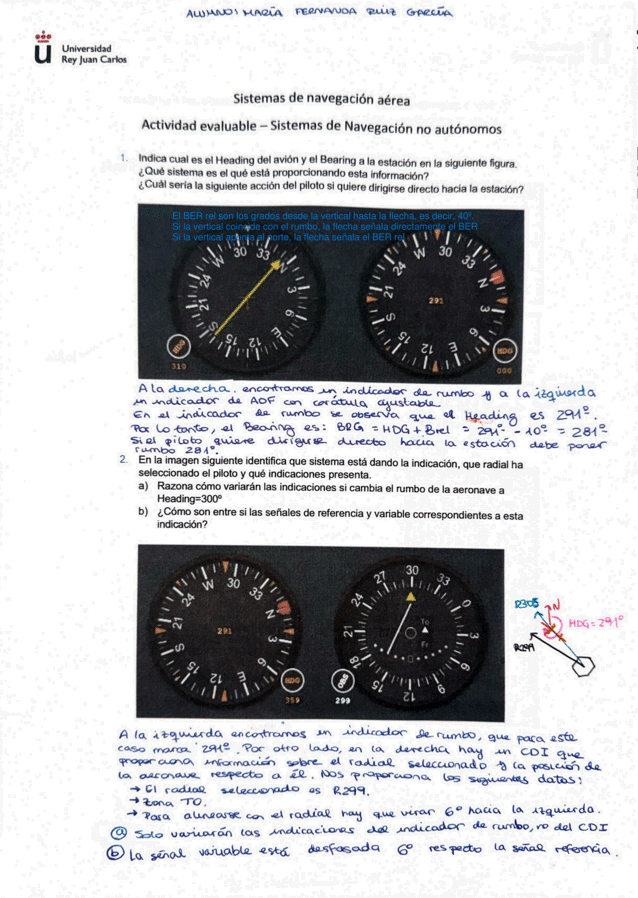 ALUMNO: MARÍA FERNANDA RUIZ GARCÍA
Universidad
Rey Juan Carlos
Sistemas de navegación aérea
Actividad evaluable – Sistemas de Navegación no autónomos
1. Indica cual es el Heading del avión y el Bearing a la estación en la siguiente figura.
¿Qué sistema es el qué está proporcionando esta información?
¿Cuál sería la siguiente acción del piloto si quiere dirigirse directo hacia la estación?
El BER rel son los grados desde la vertical hasta la flecha, es decir, 40º.
Si la vertical coincide con el rumbo, la flecha señala directamente el BER
Si la vertical apunta al norte, la flecha señala el BER rel
30 33 N 3 6 E 12 15 S 21 24 W
HDG
310
30 33 N 3 6 E 12 15 S 21 24 W
291
HDG
000
A la derecha, encontramos un indicador de rumbo y a la izquierda
un indicador de ADF con carátula ajustable.
En el indicador de rumbo se observa que el Heading es 291º.
Por lo tanto, el Bearing es: BRG = HDG + Brel = 291º - 10º = 281º
Si el piloto quiere dirigirse directo hacia la estación debe poner
rumbo 281º.
2. En la imagen siguiente identifica que sistema está dando la indicación, que radial ha
seleccionado el piloto y qué indicaciones presenta.
a) Razona cómo variarán las indicaciones si cambia el rumbo de la aeronave a
Heading=300º
b) ¿Cómo son entre si las señales de referencia y variable correspondientes a esta
indicación?
30 33 N 3 6 E 12 15 S 21 24 W
291
HDG
359
30 33 0 3 6 9 12 15 18 21 24 27
To
Fr
OBS
299
R305
N
HDG = 291º
R299
A la izquierda encontramos un indicador de rumbo, que para este
caso marca 291º. Por otro lado, en la derecha hay un CDI que
proporciona información sobre el radial seleccionado y la posición de
la aeronave respecto a él. Nos proporciona los siguientes datos:
→ El radial seleccionado es R299.
→ Zona TO.
→ Para alinearse con el radial hay que virar 6º hacia la izquierda.
ⓐ Solo variarán las indicaciones del indicador de rumbo, no del CDI
ⓑ La señal variable está desfasada 6º respecto la señal referencia.